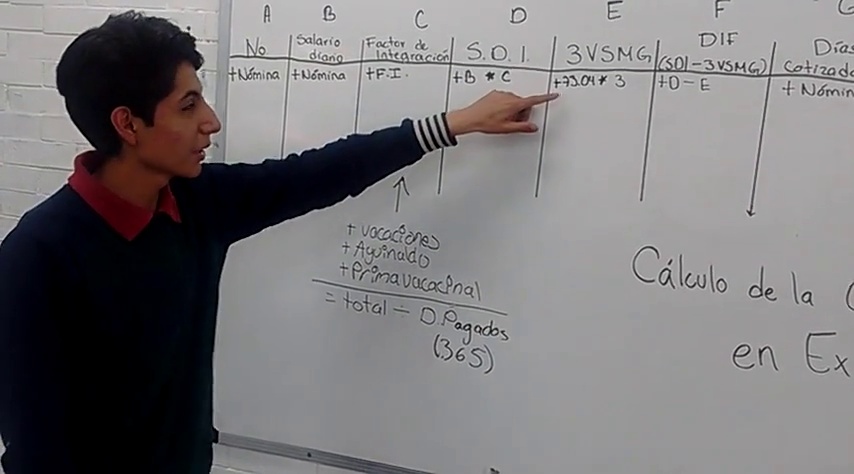 A B C D E F G
No Salario diario Factor de Integración S.D.I. 3VSMG DIF (SDI-3VSMG) Días Cotizado
+Nómina +Nómina +F.I. +B * C +73.04* 3 +D-E + Nómin
+ vacaciones
+ Aguinaldo
+ Prima vacacional
= total ÷ D. Pagados
(365)
Cálculo de la
en Ex